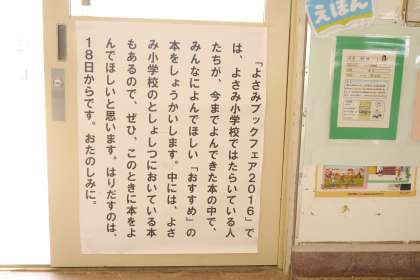 「よさみブックフェア2016」で
は、よさみ小学校ではたらいている人
たちが、今までよんできた本の中で、
みんなによんでほしい「おすすめ」の
本をしょうかいします。中には、よさ
み小学校のとしょしつにおいている本
もあるので、ぜひ、このときに本をよ
んでほしいと思います。はりだすのは、
18日からです。おたのしみに。
えほん